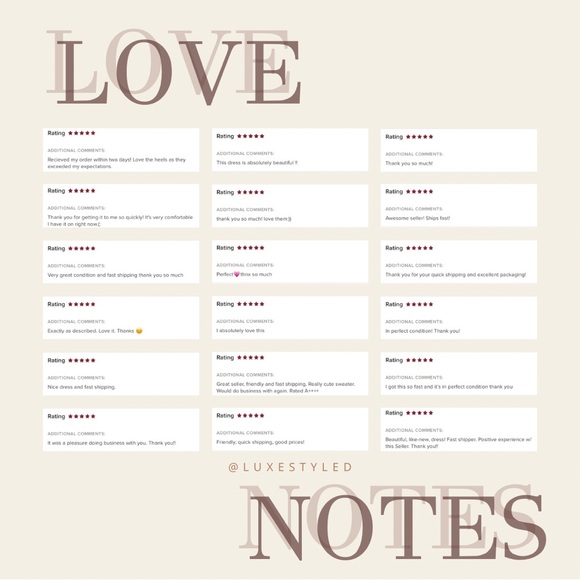 LOVE
Rating ★★★★★
ADDITIONAL COMMENTS:
Recieved my order within two days! Love the heels as they
exceeded my expectations.
Rating ★★★★★
ADDITIONAL COMMENTS:
This dress is absolutely beautiful !!
Rating ★★★★★
ADDITIONAL COMMENTS:
Thank you so much!
Rating ★★★★★
ADDITIONAL COMMENTS:
Thank you for getting it to me so quickly! It's very comfortable
I have it on right now;)
Rating ★★★★★
ADDITIONAL COMMENTS:
thank you so much! love them:))
Rating ★★★★★
ADDITIONAL COMMENTS:
Awesome seller! Ships fast!
Rating ★★★★★
ADDITIONAL COMMENTS:
Very great condition and fast shipping thank you so much
Rating ★★★★★
ADDITIONAL COMMENTS:
Perfect💗thnx so much
Rating ★★★★★
ADDITIONAL COMMENTS:
Thank you for your quick shipping and excellent packaging!
Rating ★★★★★
ADDITIONAL COMMENTS:
Exactly as described. Love it. Thanks 😊
Rating ★★★★★
ADDITIONAL COMMENTS:
I absolutely love this
Rating ★★★★★
ADDITIONAL COMMENTS:
In perfect condition! Thank you!
Rating ★★★★★
ADDITIONAL COMMENTS:
Nice dress and fast shipping.
Rating ★★★★★
ADDITIONAL COMMENTS:
Great seller, friendly and fast shipping. Really cute sweater.
Would do business with again. Rated A++++
Rating ★★★★★
ADDITIONAL COMMENTS:
I got this so fast and it's in perfect condition thank you
Rating ★★★★★
ADDITIONAL COMMENTS:
It was a pleasure doing business with you. Thank you!!
Rating ★★★★★
ADDITIONAL COMMENTS:
Friendly, quick shipping, good prices!
Rating ★★★★★
ADDITIONAL COMMENTS:
Beautiful, like-new, dress! Fast shipper. Positive experience w/
this Seller. Thank you!!
@LUXESTYLED
NOTES